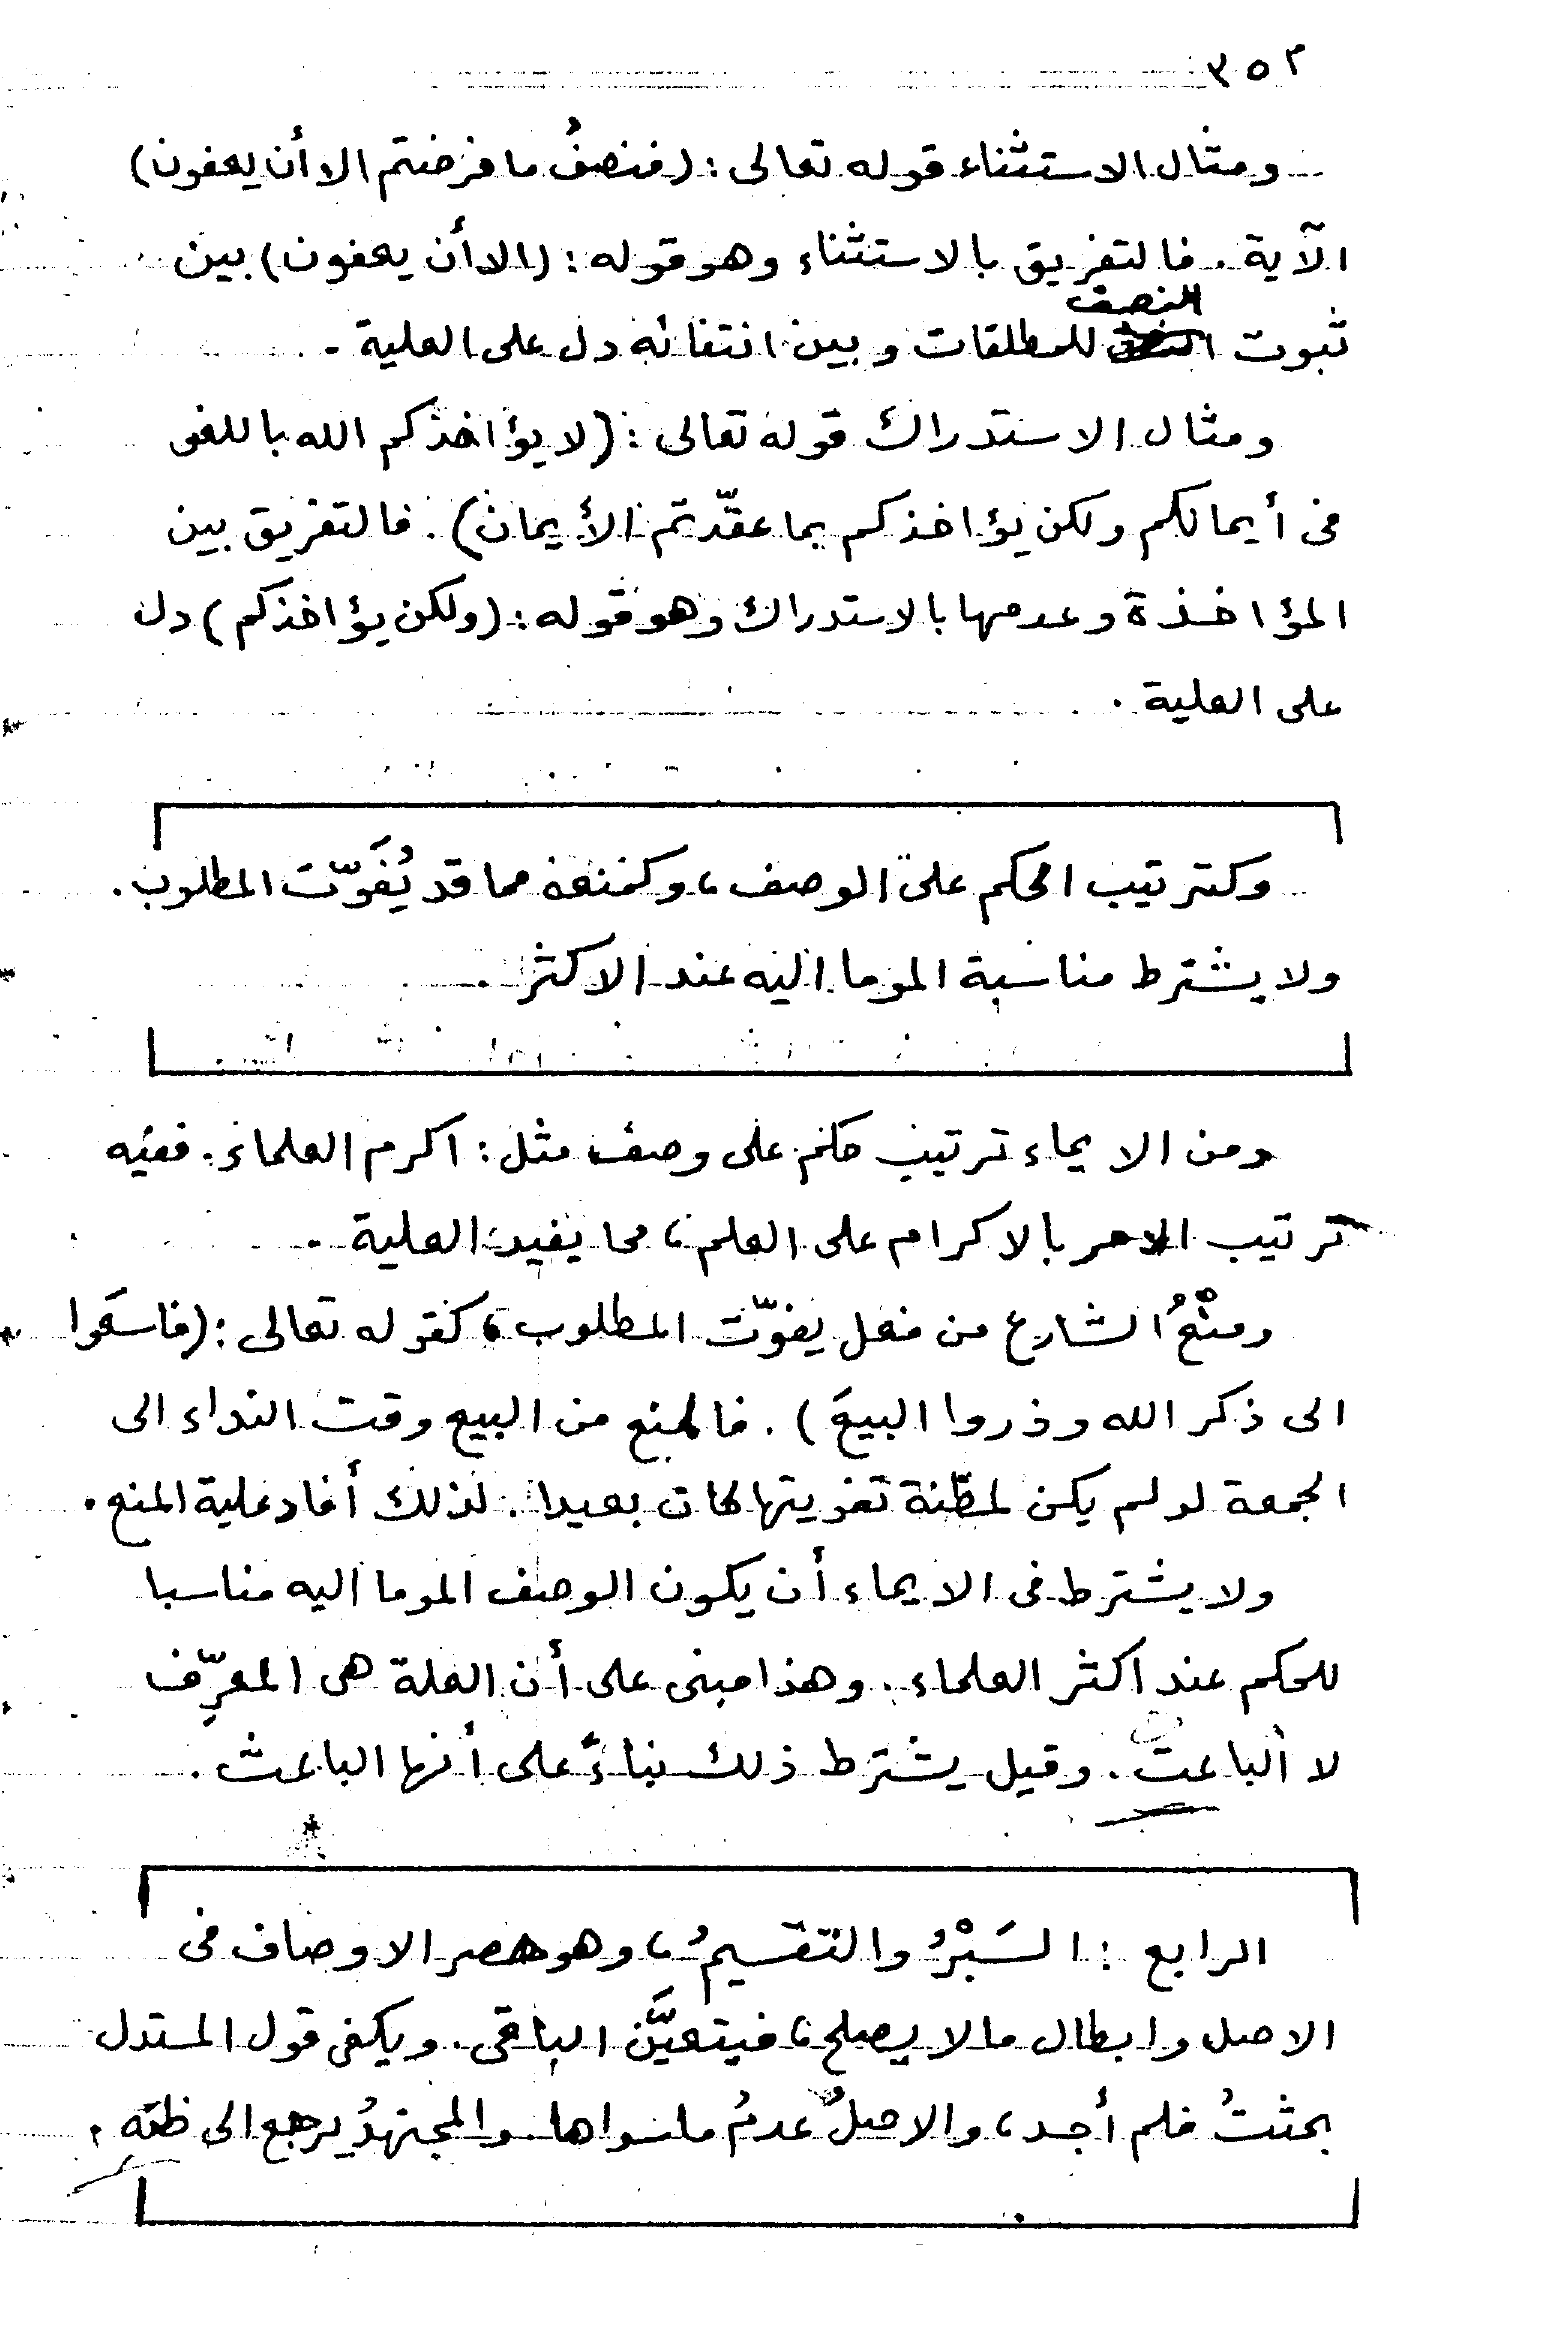 ٣٥٢
ومثال الاستثناء قوله تعالى : (فنصفُ ما فرضتم الا أن يعفون)
الآية . فالتفريق بالاستثناء وهو قوله : (الا أن يعفون) بين
ثبوت النصف للمطلقات وبين انتفائه دل على العلية .
ومثال الاستدراك قوله تعالى : (لا يؤاخذكم الله باللغو
فى أيمانكم ولكن يؤاخذكم بما عقّدتم الأيمان) . فالتفريق بين
المؤاخذة وعدمها بالاستدراك وهو قوله : (ولكن يؤاخذكم) دل
على العلية .
وكترتيب الحكم على الوصف ، وكمنعه مما قد يُفَوّت المطلوب .
ولا يشترط مناسبة الموما اليه عند الاكثر .
ومن الايماء ترتيب حكم على وصف مثل : اكرم العلماء . ففيه
ترتيب الامر بالاكرام على العلم ، مما يفيد العلية .
ومنْعُ الشارع من فعل يفوّت المطلوب ، كقوله تعالى : (فاسعَوا
الى ذكر الله وذروا البيعَ) . فالمنع من البيع وقت النداء الى
الجمعة لو لم يكن لمظنة تفويتها لكان بعيدا . لذلك أفاد علية المنع .
ولا يشترط فى الايماء أن يكون الوصف الموما اليه مناسبا
للحكم عند اكثر العلماء . وهذا مبنى على أن العلة هى المعرِّف
لا الباعث . وقيل يشترط ذلك بناءً على أنها الباعث .
الرابع : السَبْرُ والتقسيمُ ، وهو حصر الاوصاف فى
الاصل وابطال ما لا يصلح ، فيتعيَّن الباقى . ويكفى قول المستدل
بحثتُ فلم أجد ، والاصلُ عدمُ ما سواها . والمجتهدُ يرجع الى ظنه .